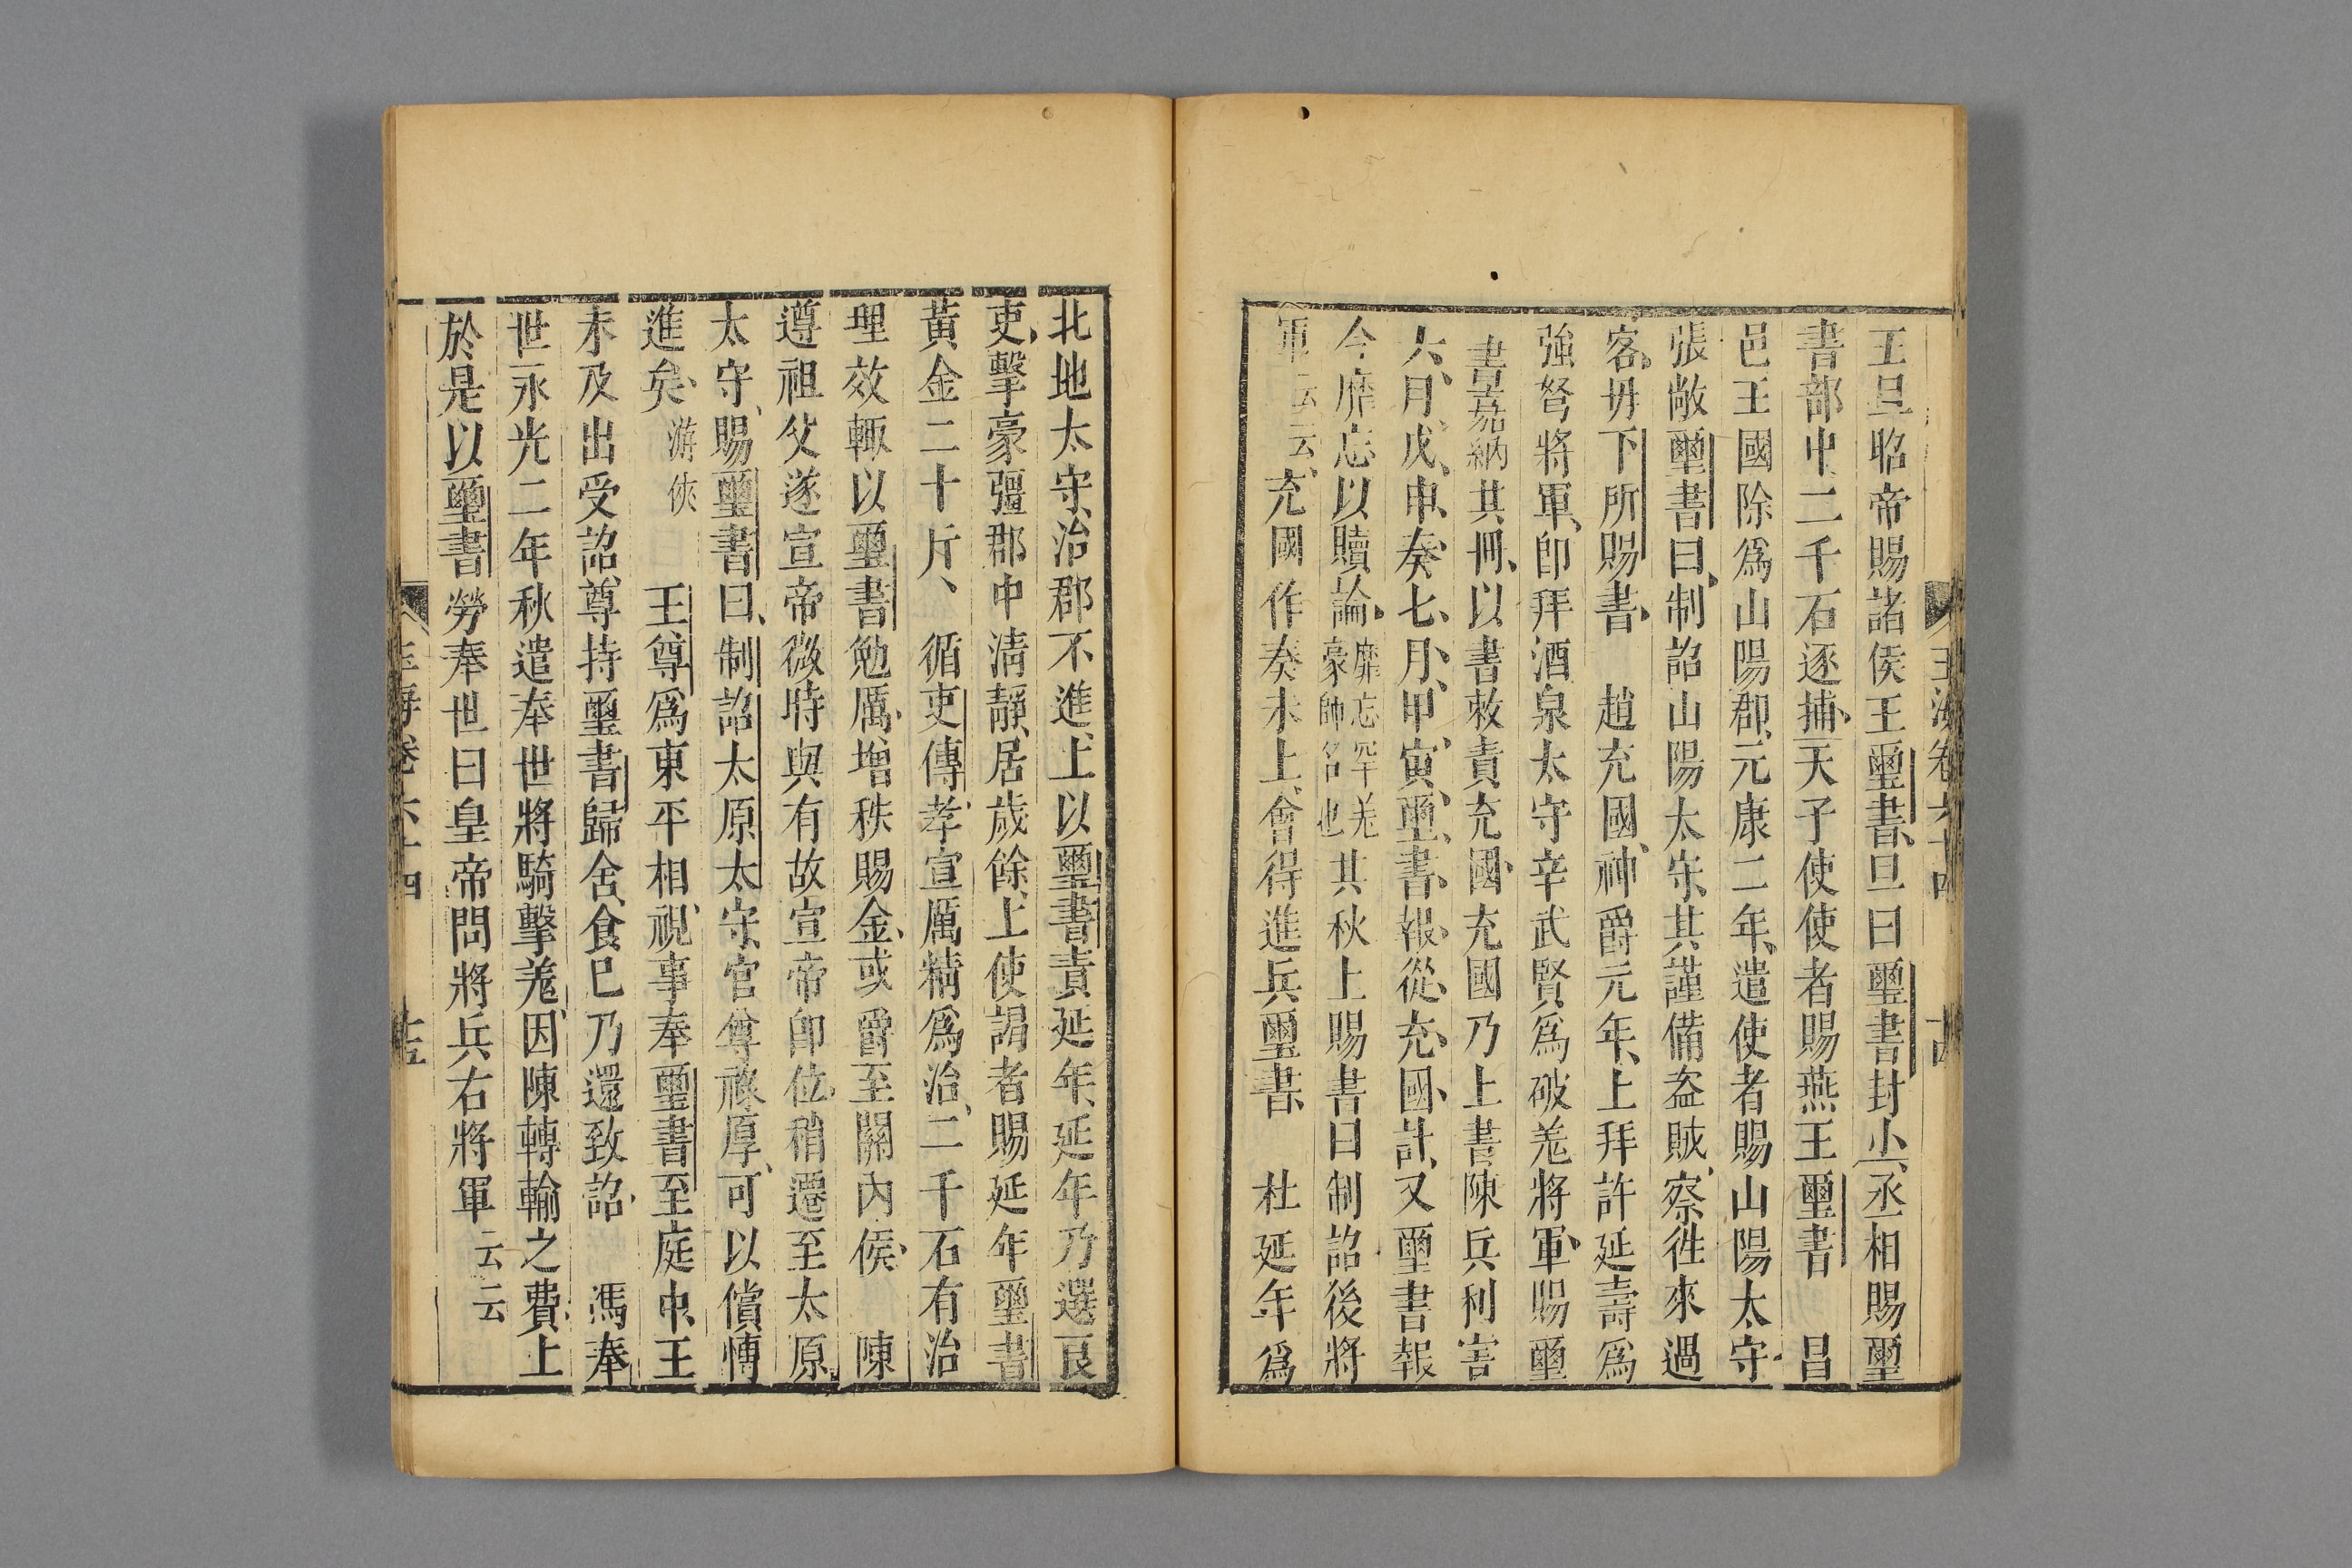 玉海卷六十四
王旦昭帝賜諸侯王璽書旦曰璽書封小丞相賜璽
書部中二千石逐捕天子使使者賜燕王璽書 昌
邑王國除爲山陽郡元康二年遣使者賜山陽太守
張敞璽書曰制詔山陽太守其謹備盜賊察徃來過
客毋下所賜書 趙充國神爵元年上拜許延壽爲
強弩將軍卽拜酒泉太守辛武賢爲破羌將軍賜璽
書嘉納其冊以書敕責充國充國乃上書陳兵利害
六月戊申奏七月甲寅璽書報從充國計又璽書報
令靡忘以贖論靡忘罕羌豪帥名也其秋上賜書曰制詔後將
軍云云充國作奏未上會得進兵璽書 杜延年爲
北地太守治郡不進上以璽書責延年延年乃選良
吏擊豪彊郡中淸靜居歲餘上使謁者賜延年璽書
黃金二十斤 循吏傳孝宣厲精爲治二千石有治
理效輒以璽書勉厲增秩賜金或爵至關內侯 陳
遵祖父遂宣帝微時與有故宣帝卽位稍遷至太原
太守賜璽書曰制詔太原太守官尊祿厚可以償博
進矣游俠 王尊爲東平相視事奉璽書至庭中王
未及出受詔尊持璽書歸舍食已乃還致詔 馮奉
世永光二年秋遣奉世將騎擊羌因陳轉輸之費上
於是以璽書勞奉世曰皇帝問將兵右將軍云云
玉海卷六十四 十五